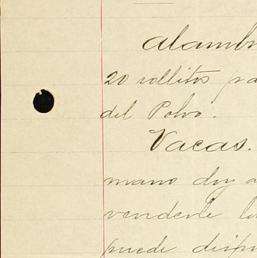 Alambr
20 rollitos pa
del Polvo.
Vacas.
mano doy a
venderle la
puede dispo